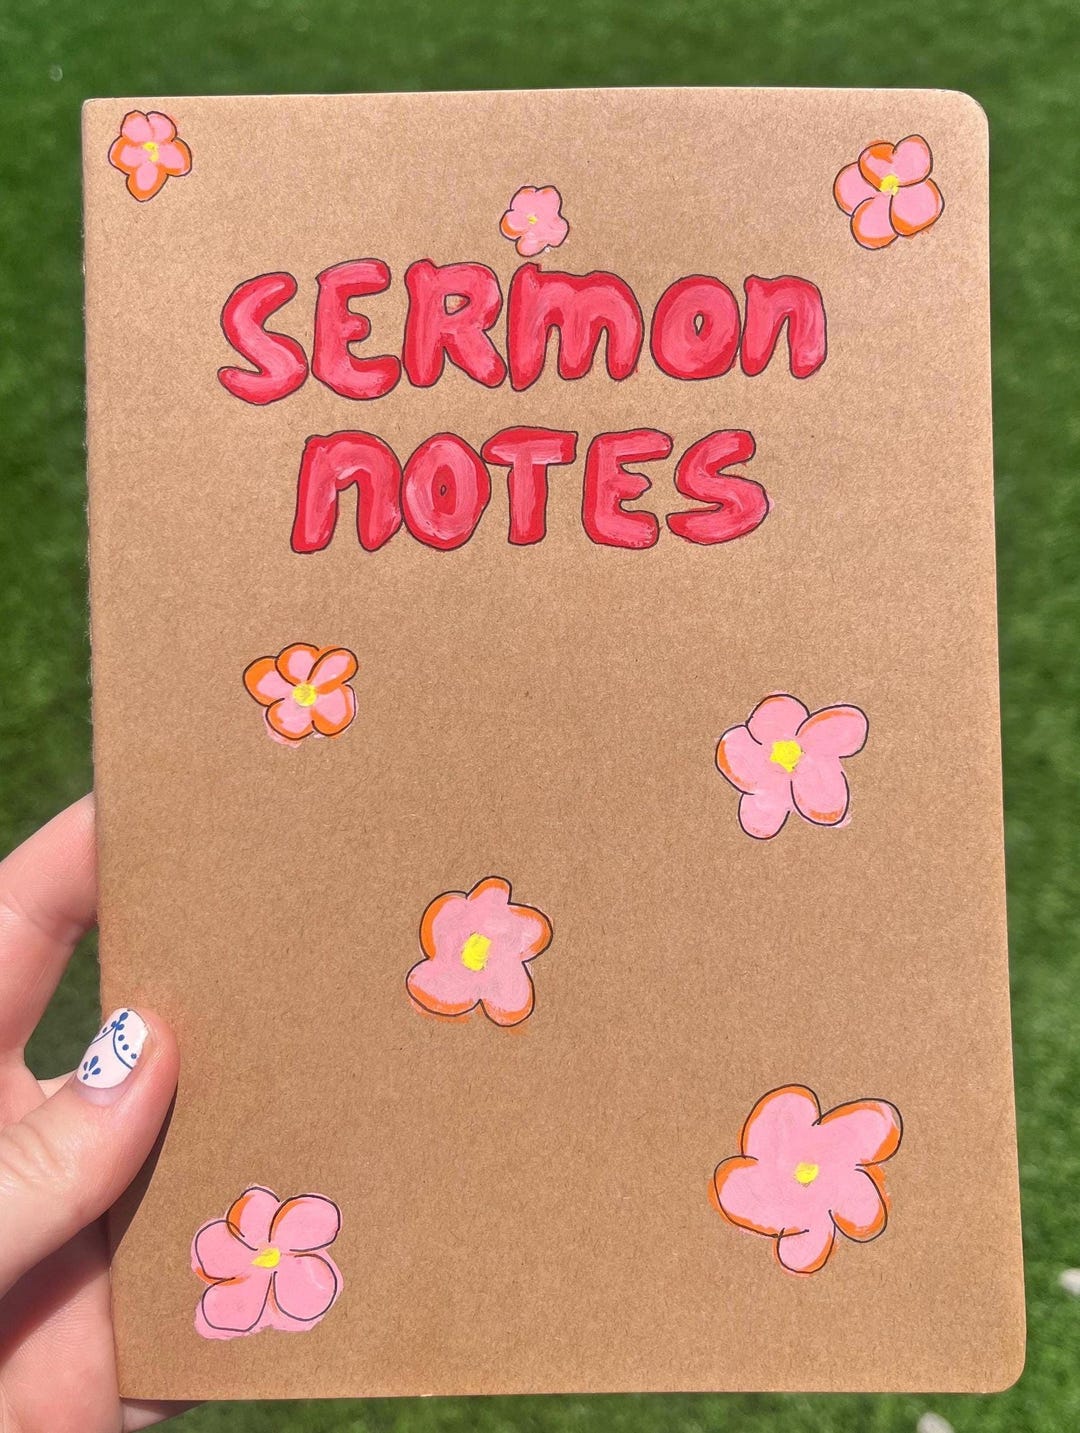 SERMON
NOTES